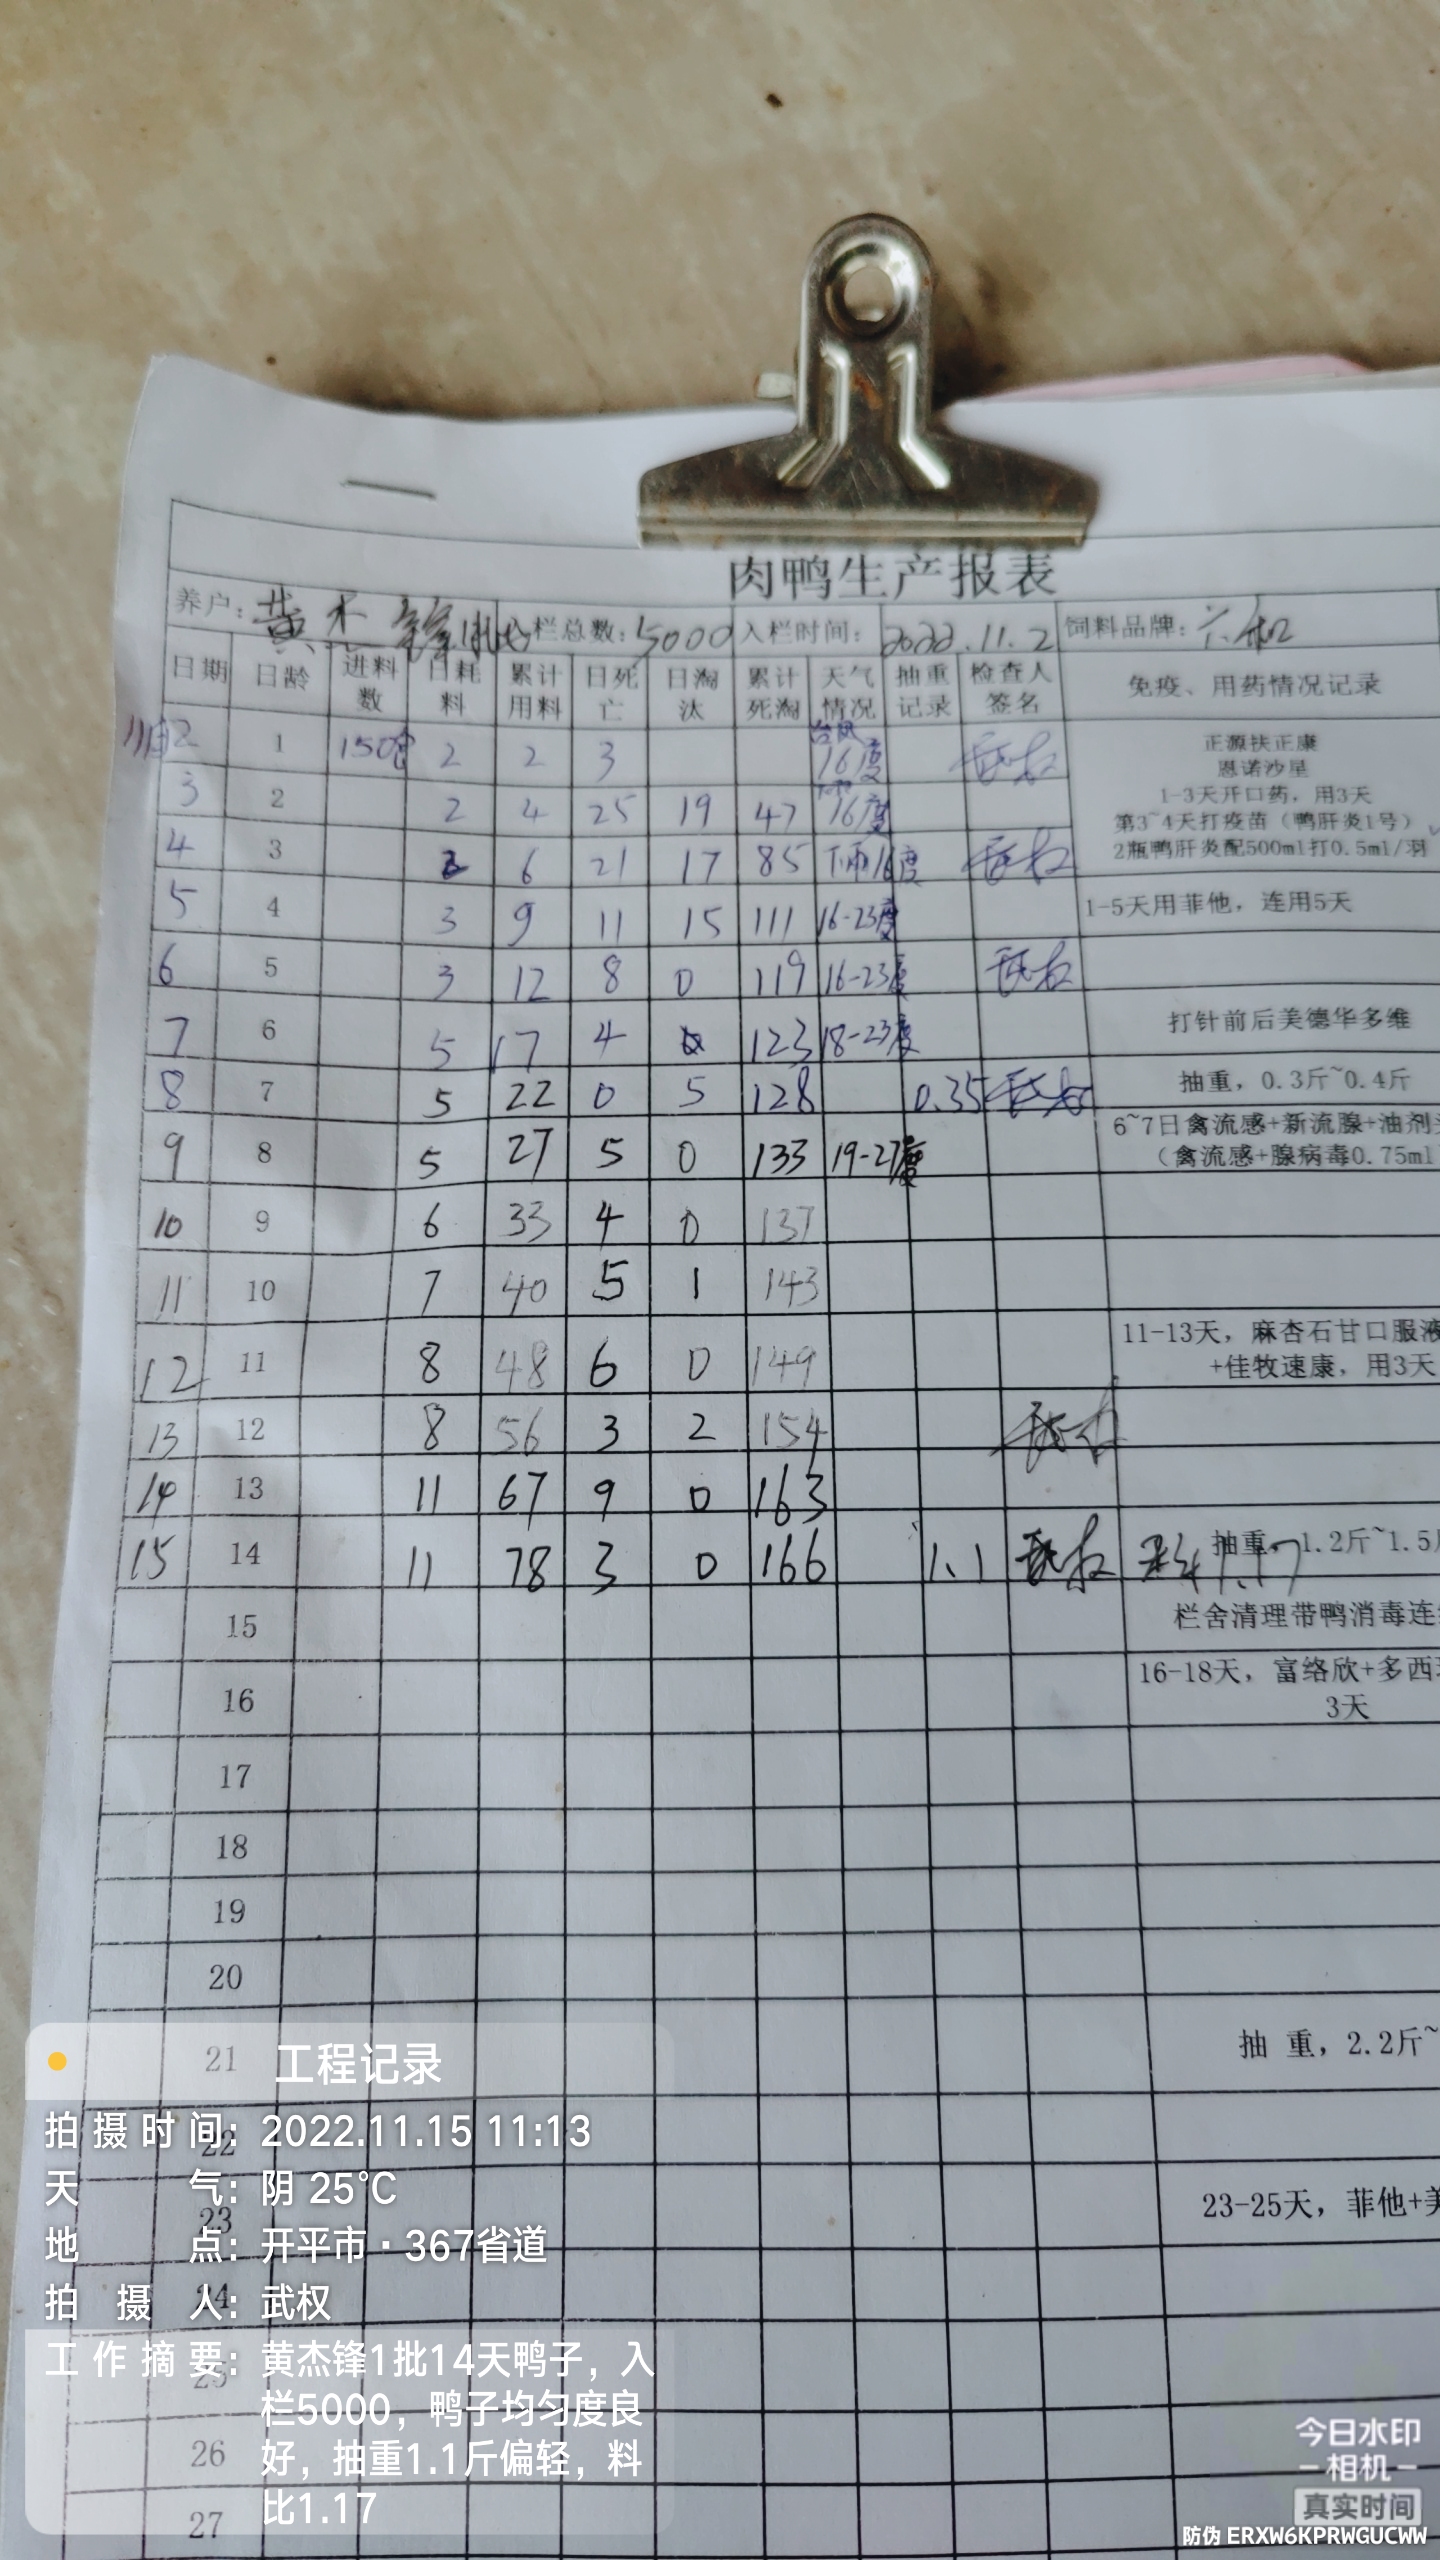 肉鸭生产报表
养户: 黄杰锋1批 入栏总数: 5000 入栏时间: 2022.11.2 饲料品牌: 六和
日期 日龄 进料数 日耗料 累计用料 日死亡 日淘汰 累计死淘 天气情况 抽重记录 检查人签名 免疫、用药情况记录
11月2 1 150包 2 2 3 台风 16度 武权
正源扶正康
恩诺沙星
1-3天开口药，用3天
第3~4天打疫苗（鸭肝炎1号）
2瓶鸭肝炎配500ml打0.5ml/羽
3 2 2 4 25 19 47 16度
4 3 2 6 21 17 85 下雨16度 武权
5 4 3 9 11 15 111 16-23度 1-5天用菲他，连用5天
6 5 3 12 8 0 119 16-23度 武权
7 6 5 17 4 0 123 18-23度 打针前后美德华多维
8 7 5 22 0 5 128 0.35 武权 抽重，0.3斤~0.4斤
9 8 5 27 5 0 133 19-27度 6~7日禽流感+新流腺+油剂
（禽流感+腺病毒0.75ml
10 9 6 33 4 0 137
11 10 7 40 5 1 143
12 11 8 48 6 0 149 11-13天，麻杏石甘口服液
+佳牧速康，用3天
13 12 8 56 3 2 154 武权
14 13 11 67 9 0 163
15 14 11 78 3 0 166 1.1 武权 抽重，1.2斤~1.5 料比1.17
15 栏舍清理带鸭消毒连
16 16-18天，富络欣+多西
3天
17
18
19
20
21 抽 重，2.2斤~
22
23 23-25天，菲他+美
24
25
26
27
工程记录
拍摄时间: 2022.11.15 11:13
天气: 阴 25℃
地点: 开平市·367省道
拍摄人: 武权
工作摘要: 黄杰锋1批14天鸭子，入
栏5000，鸭子均匀度良
好，抽重1.1斤偏轻，料
比1.17
今日水印
相机
真实时间
防伪 ERXW6KPRWGUCWW